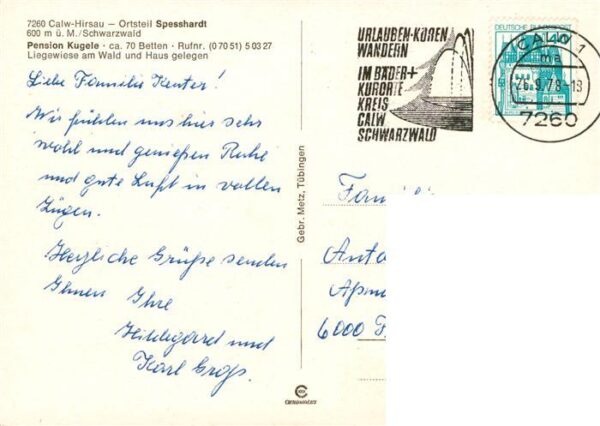 7260 Calw-Hirsau – Ortsteil Spesshardt
600 m ü. M./Schwarzwald
Pension Kugele · ca. 70 Betten · Rufnr. (0 70 51) 5 03 27
Liegewiese am Wald und Haus gelegen
Liebe Familie Kenter!
Wir fühlen uns hier sehr
wohl und genießen Ruhe
und gute Luft in vollen
Zügen.
Herzliche Grüße senden
Ihnen Ihre
Hildegard und
Karl Groß.
Gebr. Metz, Tübingen
URLAUBEN-KUREN
WANDERN
IM BÄDER+
KURORTE
KREIS
CALW
SCHWARZWALD
DEUTSCHE BUNDESPOST
40
CALW 1
ma
26.9.78-18
7260
Famili
Anto
6000 F